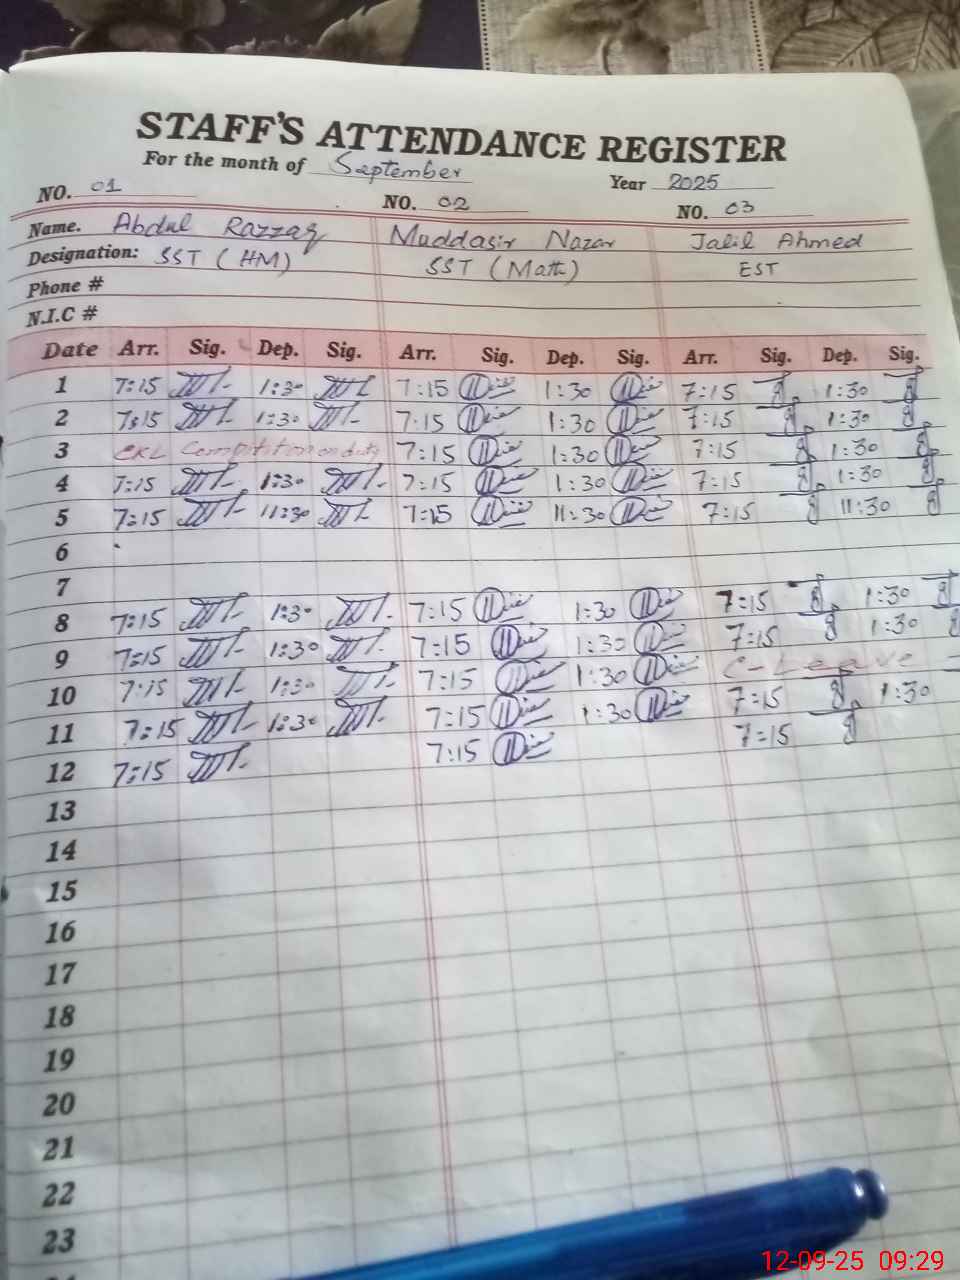 STAFF'S ATTENDANCE REGISTER
For the month of September Year 2025
NO. 01 NO. 02 NO. 03
Name. Abdul Razzaq Muddasir Nazar Jalil Ahmed
Designation: SST (HM) SST (Math) EST
Phone #
N.I.C #
Date Arr. Sig. Dep. Sig. Arr. Sig. Dep. Sig. Arr. Sig. Dep. Sig.
1 7:15 1:30 7:15 1:30 7:15 1:30
2 7:15 1:30 7:15 1:30 7:15 1:30
3 Compitition on duty 7:15 1:30 7:15 1:30
4 7:15 1:30 7:15 1:30 7:15 1:30
5 7:15 11:30 7:15 11:30 7:15 11:30
6
7
8 7:15 1:30 7:15 1:30 7:15 1:30
9 7:15 1:30 7:15 1:30 7:15 1:30
10 7:15 1:30 7:15 1:30 C-Leave
11 7:15 1:30 7:15 1:30 7:15 1:30
12 7:15 7:15 7:15
13
14
15
16
17
18
19
20
21
22
23
12-09-25 09:29